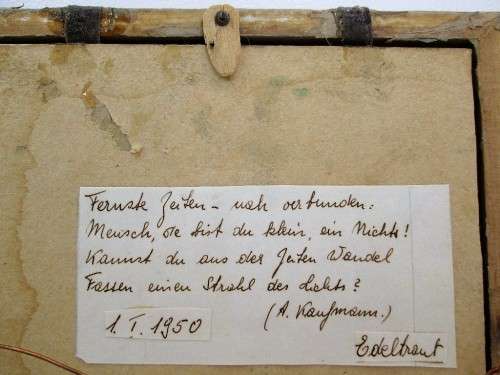 Fernste Zeiten – nah verbunden:
Mensch, wie bist du klein, ein Nichts!
Kannst du aus der Zeiten Wandel
Fassen einen Strahl des Lichts?
(A. Kaufmann.)
1. I. 1950
Edeltraut